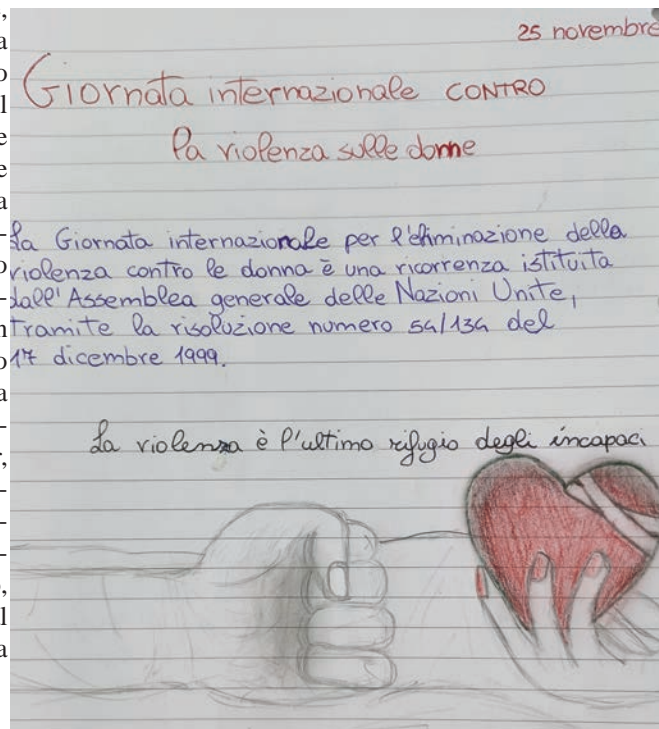 25 novembre
Giornata internazionale CONTRO
la violenza sulle donne
La Giornata internazionale per l'eliminazione della
violenza contro le donna è una ricorrenza istituita
dall'Assemblea generale delle Nazioni Unite,
tramite la risoluzione numero 54/134 del
17 dicembre 1999.
La violenza è l'ultimo rifugio degli incapaci